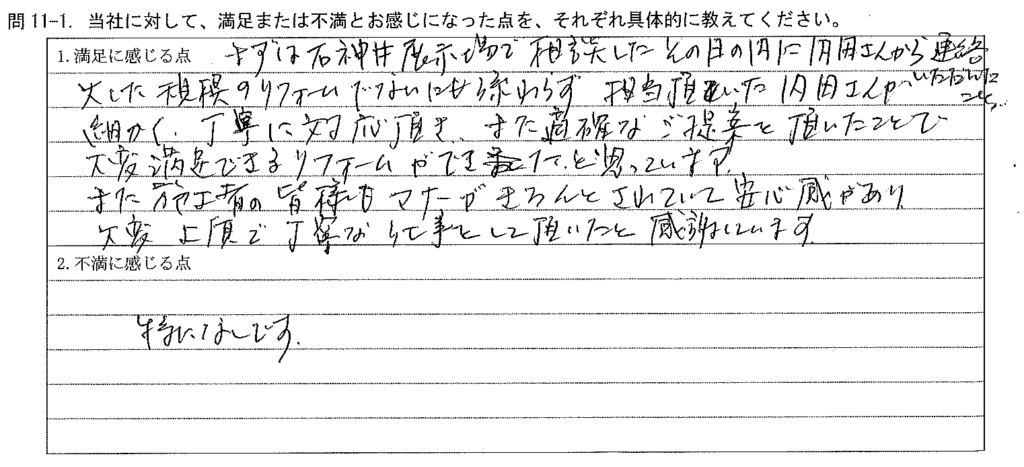 問11-1. 当社に対して、満足または不満とお感じになった点を、それぞれ具体的に教えてください。
1.満足に感じる点 まずは石神井展示場で相談したその日の内に内田さんから連絡
いただいたこと。
大した規模のリフォームでないにも係わらず 担当頂いた内田さんが
細かく、丁寧に対応頂き、また適確なご提案を頂いたことで
大変満足できるリフォームができたと思っています。
また施工者の皆様もマナーがきちんとされていて安心感があり
大変上質で丁寧な仕事をして頂いたと感謝しています。
2.不満に感じる点
特になしです。